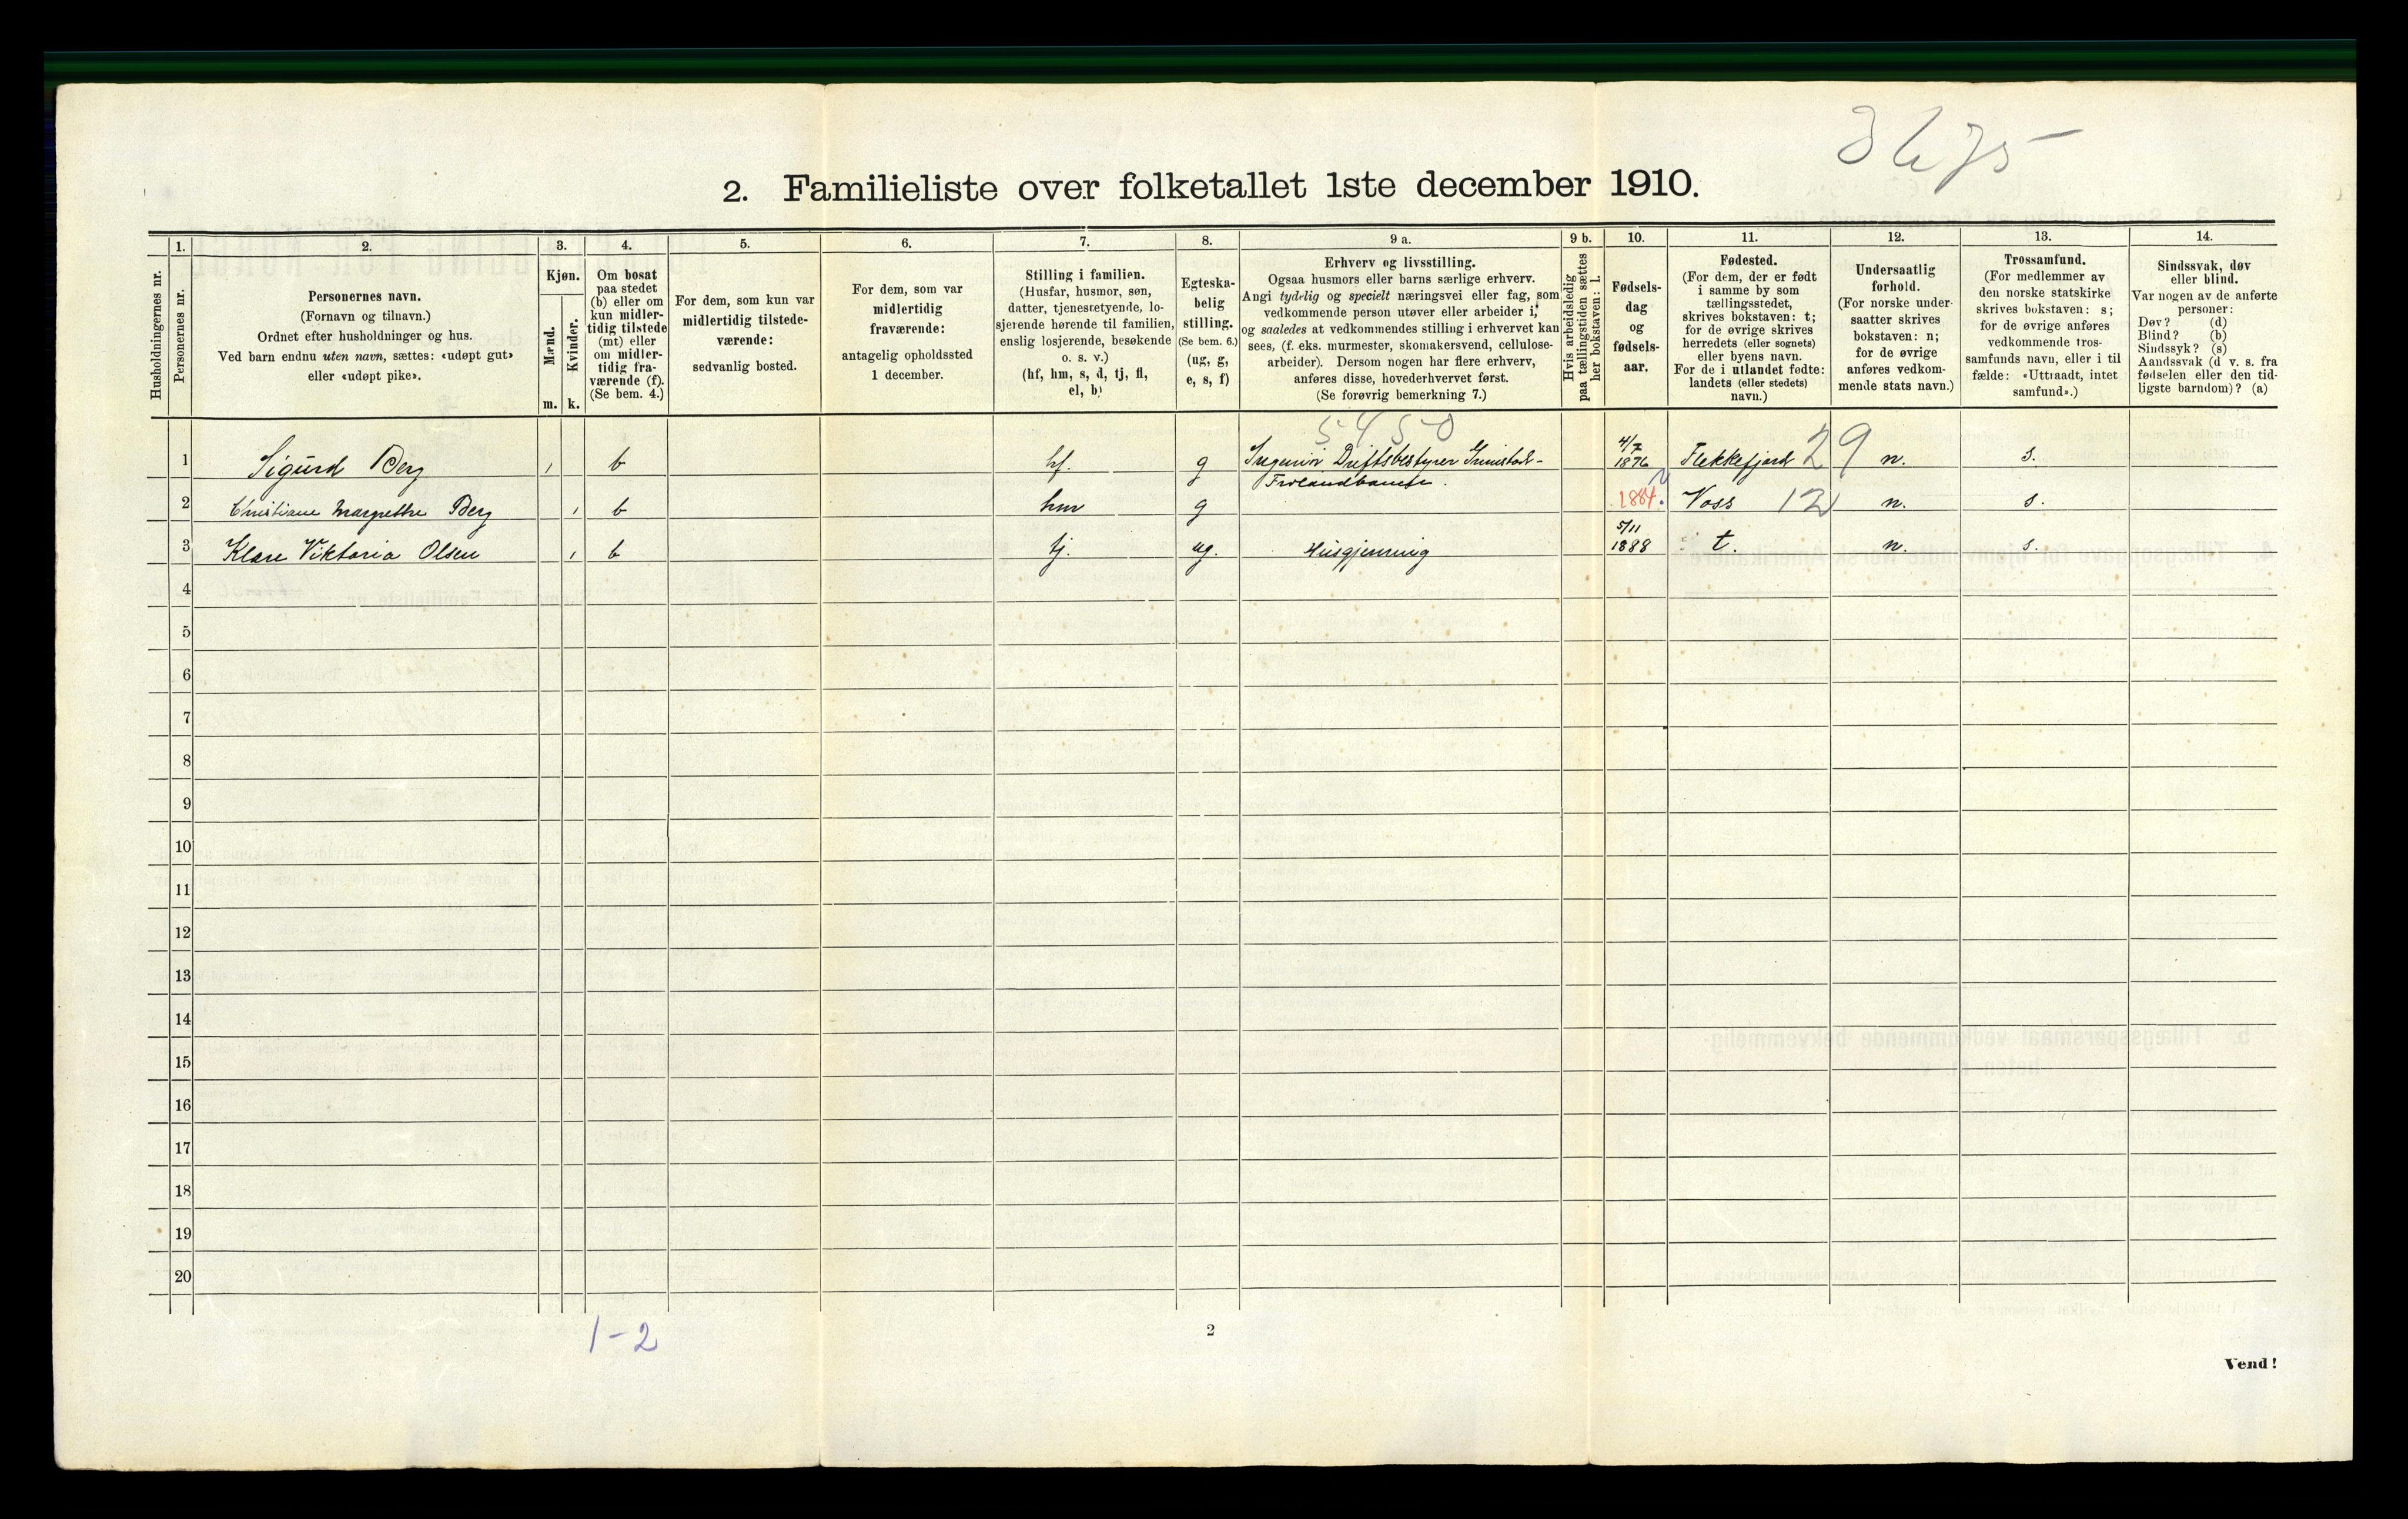 3675
2. Familieliste over folketallet 1ste december 1910.
1. 2. 3. 4. 5. 6. 7. 8. 9 a. 9 b. 10. 11. 12. 13. 14.
Husholdningernes nr.
Personernes nr.
Personernes navn.
(Fornavn og tilnavn.)
Ordnet efter husholdninger og hus.
Ved barn endnu uten navn, sættes: «udøpt gut»
eller «udøpt pike».
Kjøn.
Mænd.
Kvinder.
m. k.
Om bosat
paa stedet
(b) eller om
kun midler-
tidig tilstede
(mt) eller
om midler-
tidig fra-
værende (f).
(Se bem. 4.)
For dem, som kun var
midlertidig tilstede-
værende:
sedvanlig bosted.
For dem, som var
midlertidig
fraværende:
antagelig opholdssted
1 december.
Stilling i familien.
(Husfar, husmor, søn,
datter, tjenestetyende, lo-
sjerende hørende til familien,
enslig losjerende, besøkende
o. s. v.)
(hf, hm, s, d, tj, fl,
el, b)
Egteska-
belig
stilling.
(Se bem. 6.)
(ug, g,
e, s, f)
Erhverv og livsstilling.
Ogsaa husmors eller barns særlige erhverv.
Angi tydelig og specielt næringsvei eller fag, som
vedkommende person utøver eller arbeider i,
og saaledes at vedkommendes stilling i erhvervet kan
sees, (f. eks. murmester, skomakersvend, cellulose-
arbeider). Dersom nogen har flere erhverv,
anføres disse, hovederhvervet først.
(Se forøvrig bemerkning 7.)
Hvis arbeidsledig
paa tællingstiden sættes
her bokstaven: l.
Fødsels-
dag
og
fødsels-
aar.
Fødested.
(For dem, der er født
i samme by som
tællingsstedet,
skrives bokstaven: t;
for de øvrige skrives
herredets (eller sognets)
eller byens navn.
For de i utlandet fødte:
landets (eller stedets)
navn.)
Undersaatlig
forhold.
(For norske under-
saatter skrives
bokstaven: n;
for de øvrige
anføres vedkom-
mende stats navn.)
Trossamfund.
(For medlemmer av
den norske statskirke
skrives bokstaven: s;
for de øvrige anføres
vedkommende tros-
samfunds navn, eller i til
fælde: «Uttraadt, intet
samfund».)
Sindssvak, døv
eller blind.
Var nogen av de anførte
personer:
Døv? (d)
Blind? (b)
Sindssyk? (s)
Aandssvak (d v. s. fra
fødselen eller den tid-
ligste barndom)? (a)
5450
1 Sigurd Berg 1 b hf. g Ingeniör Driftsbestyrer Grimstad- 4/7 1876 Flekkefjord 29 n. s.
Frolandbanen.
2 Christiane Margrethe Berg 1 b hm g 1884. Voss 12 n. s.
3 Klara Viktoria Olsen 1 b tj. ug. Husgjerning 5/11 1888 t. n. s.
4
5
6
7
8
9
10
11
12
13
14
15
16
17
18
19
20
1-2
2
Vend!